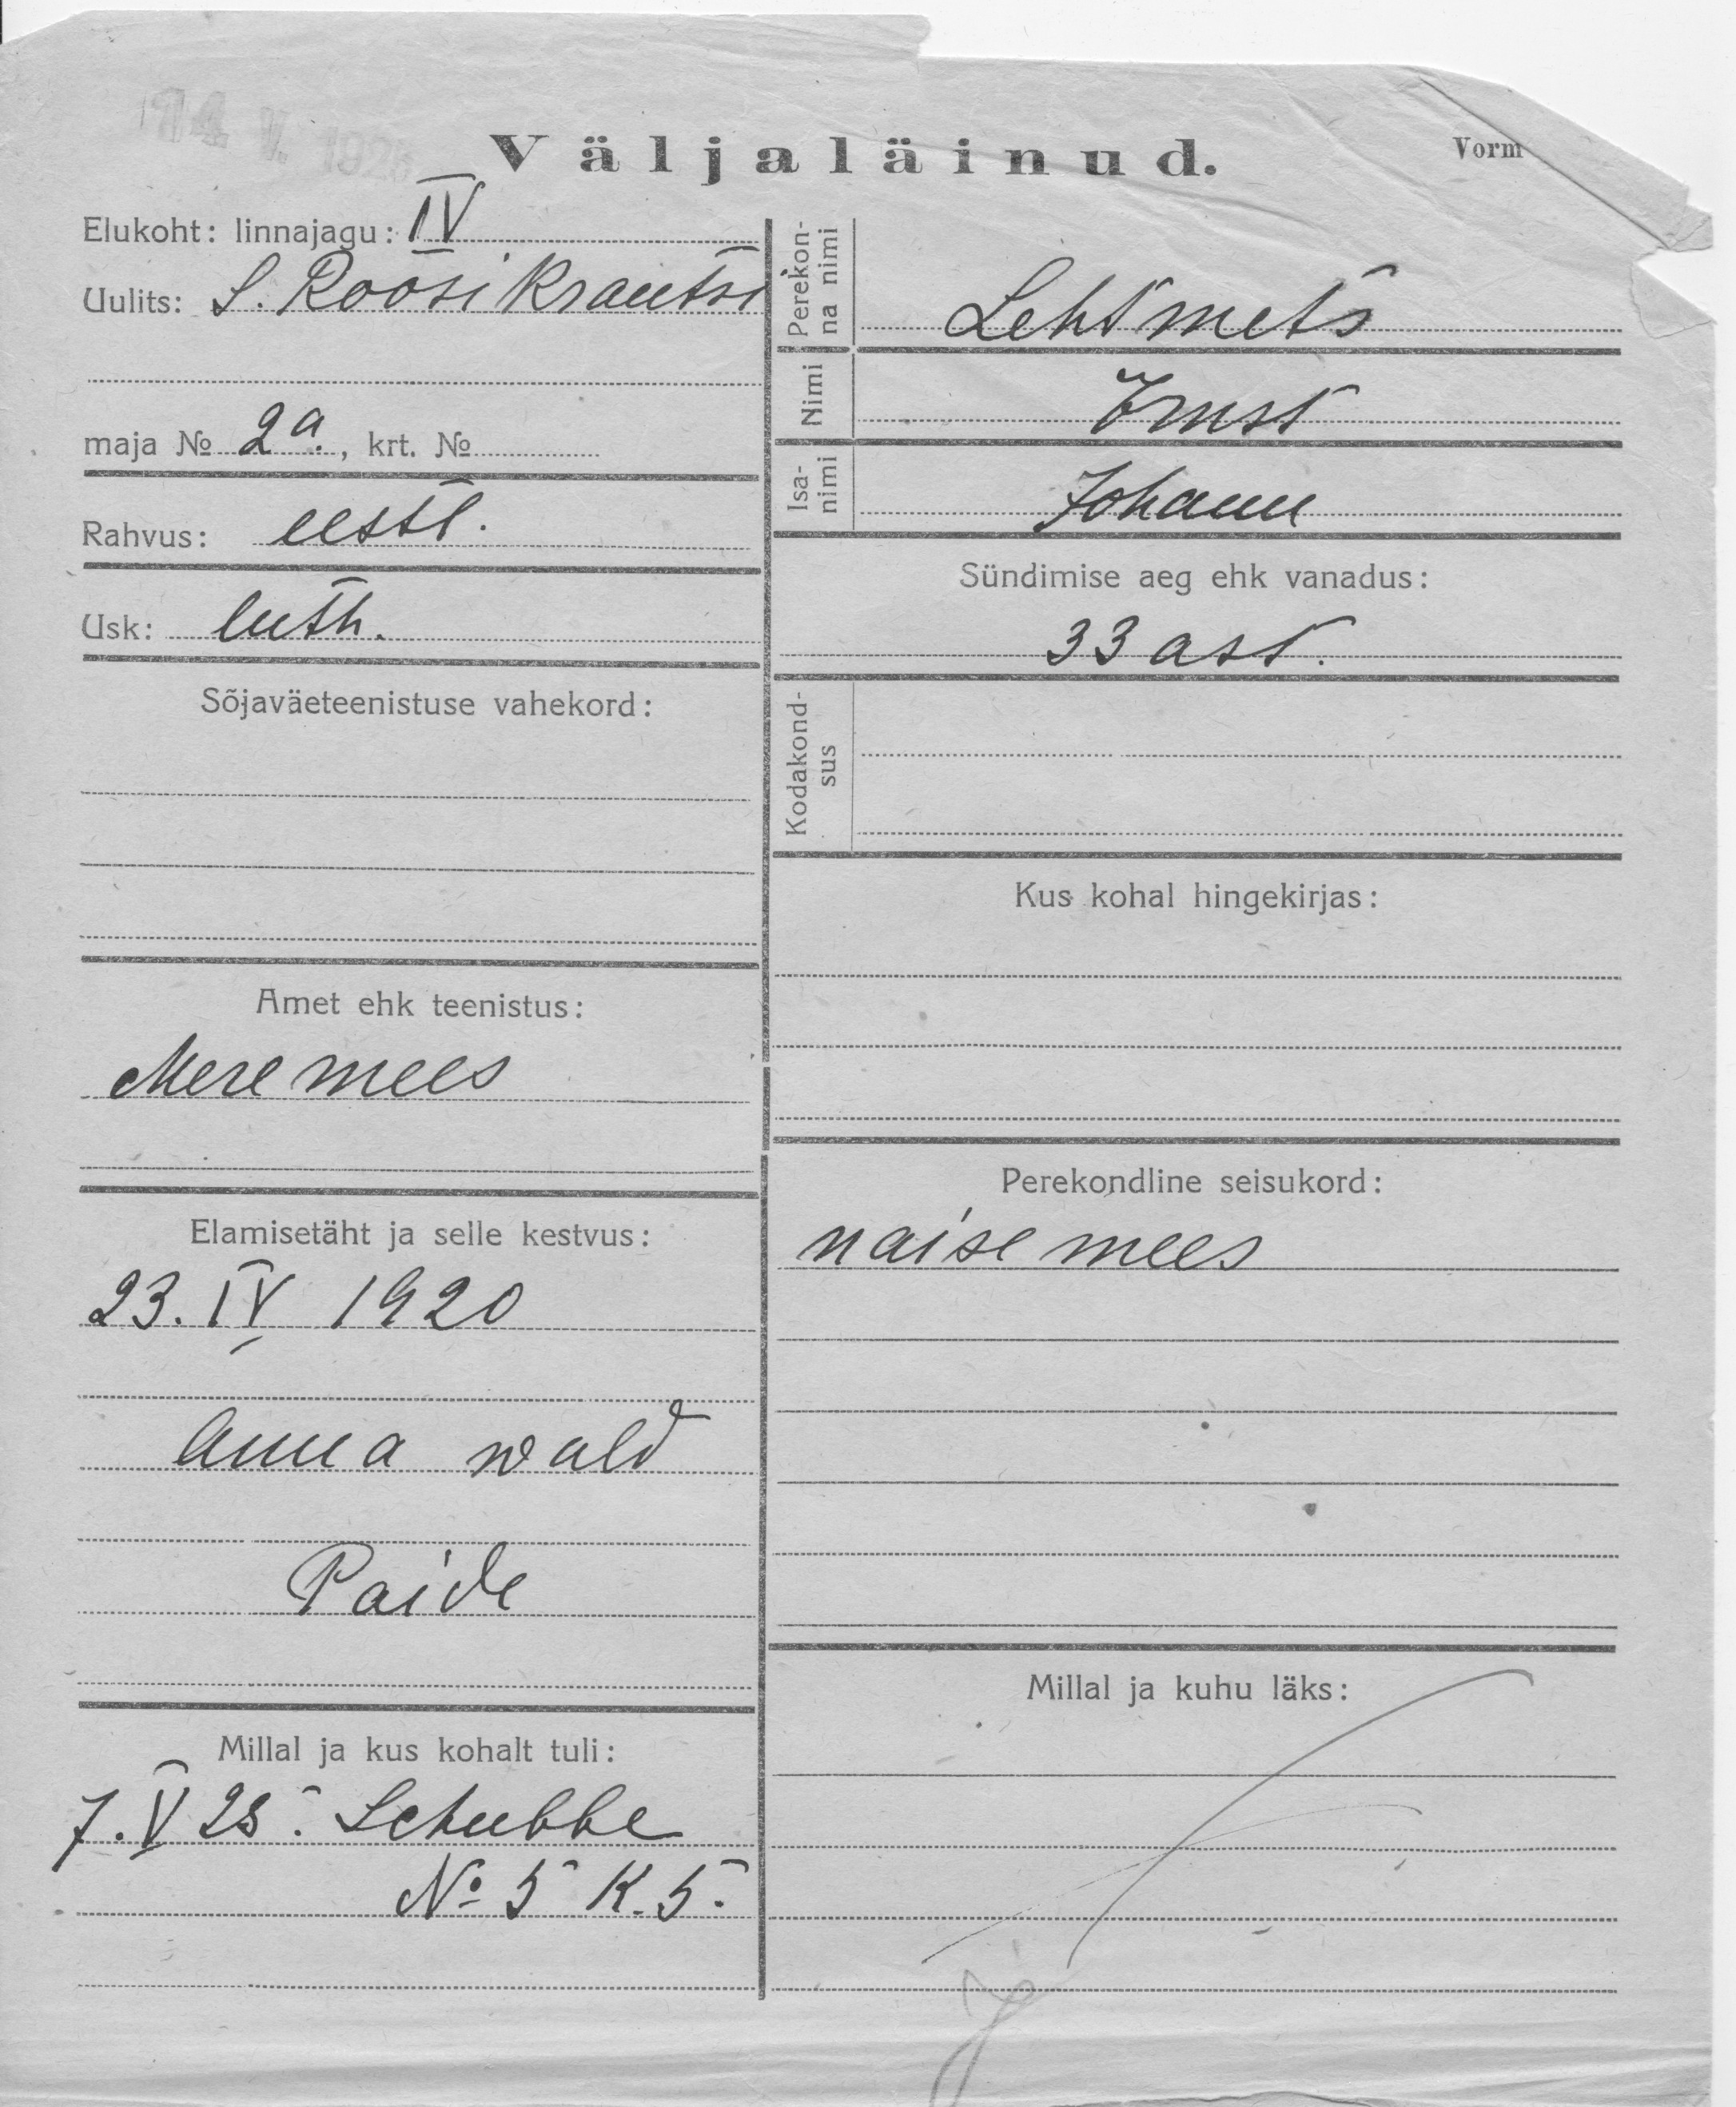 14. V. 192
Väljaläinud.
Vorm
Elukoht: linnajagu: IV
Uulits: S. Roosikrantsi
maja № 2a., krt. №
Rahvus: eestl.
Usk: luth.
Sõjaväeteenistuse vahekord:
Amet ehk teenistus:
Meremees
Elamisetäht ja selle kestvus:
23. IV 1920
Anna wald
Paide
Millal ja kus kohalt tuli:
7. V 25. Schubbe
№ 5 K. 5.
Perekon-
na nimi
Lehtmets
Nimi
Ernst
Isa-
nimi
Johann
Sündimise aeg ehk vanadus:
33 ast.
Kodakond-
sus
Kus kohal hingekirjas:
Perekondline seisukord:
naisemees
Millal ja kuhu läks: